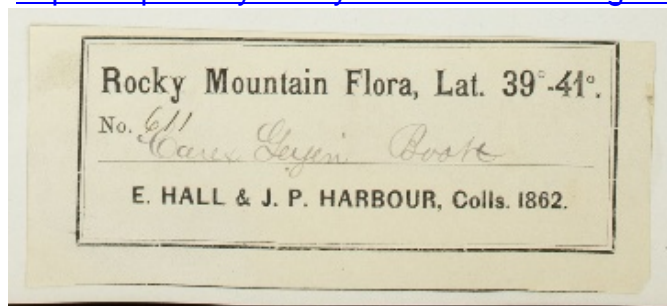 Rocky Mountain Flora, Lat. 39°-41°.
No. 611
Carex Geyeri Boott
E. HALL & J. P. HARBOUR, Colls. 1862.